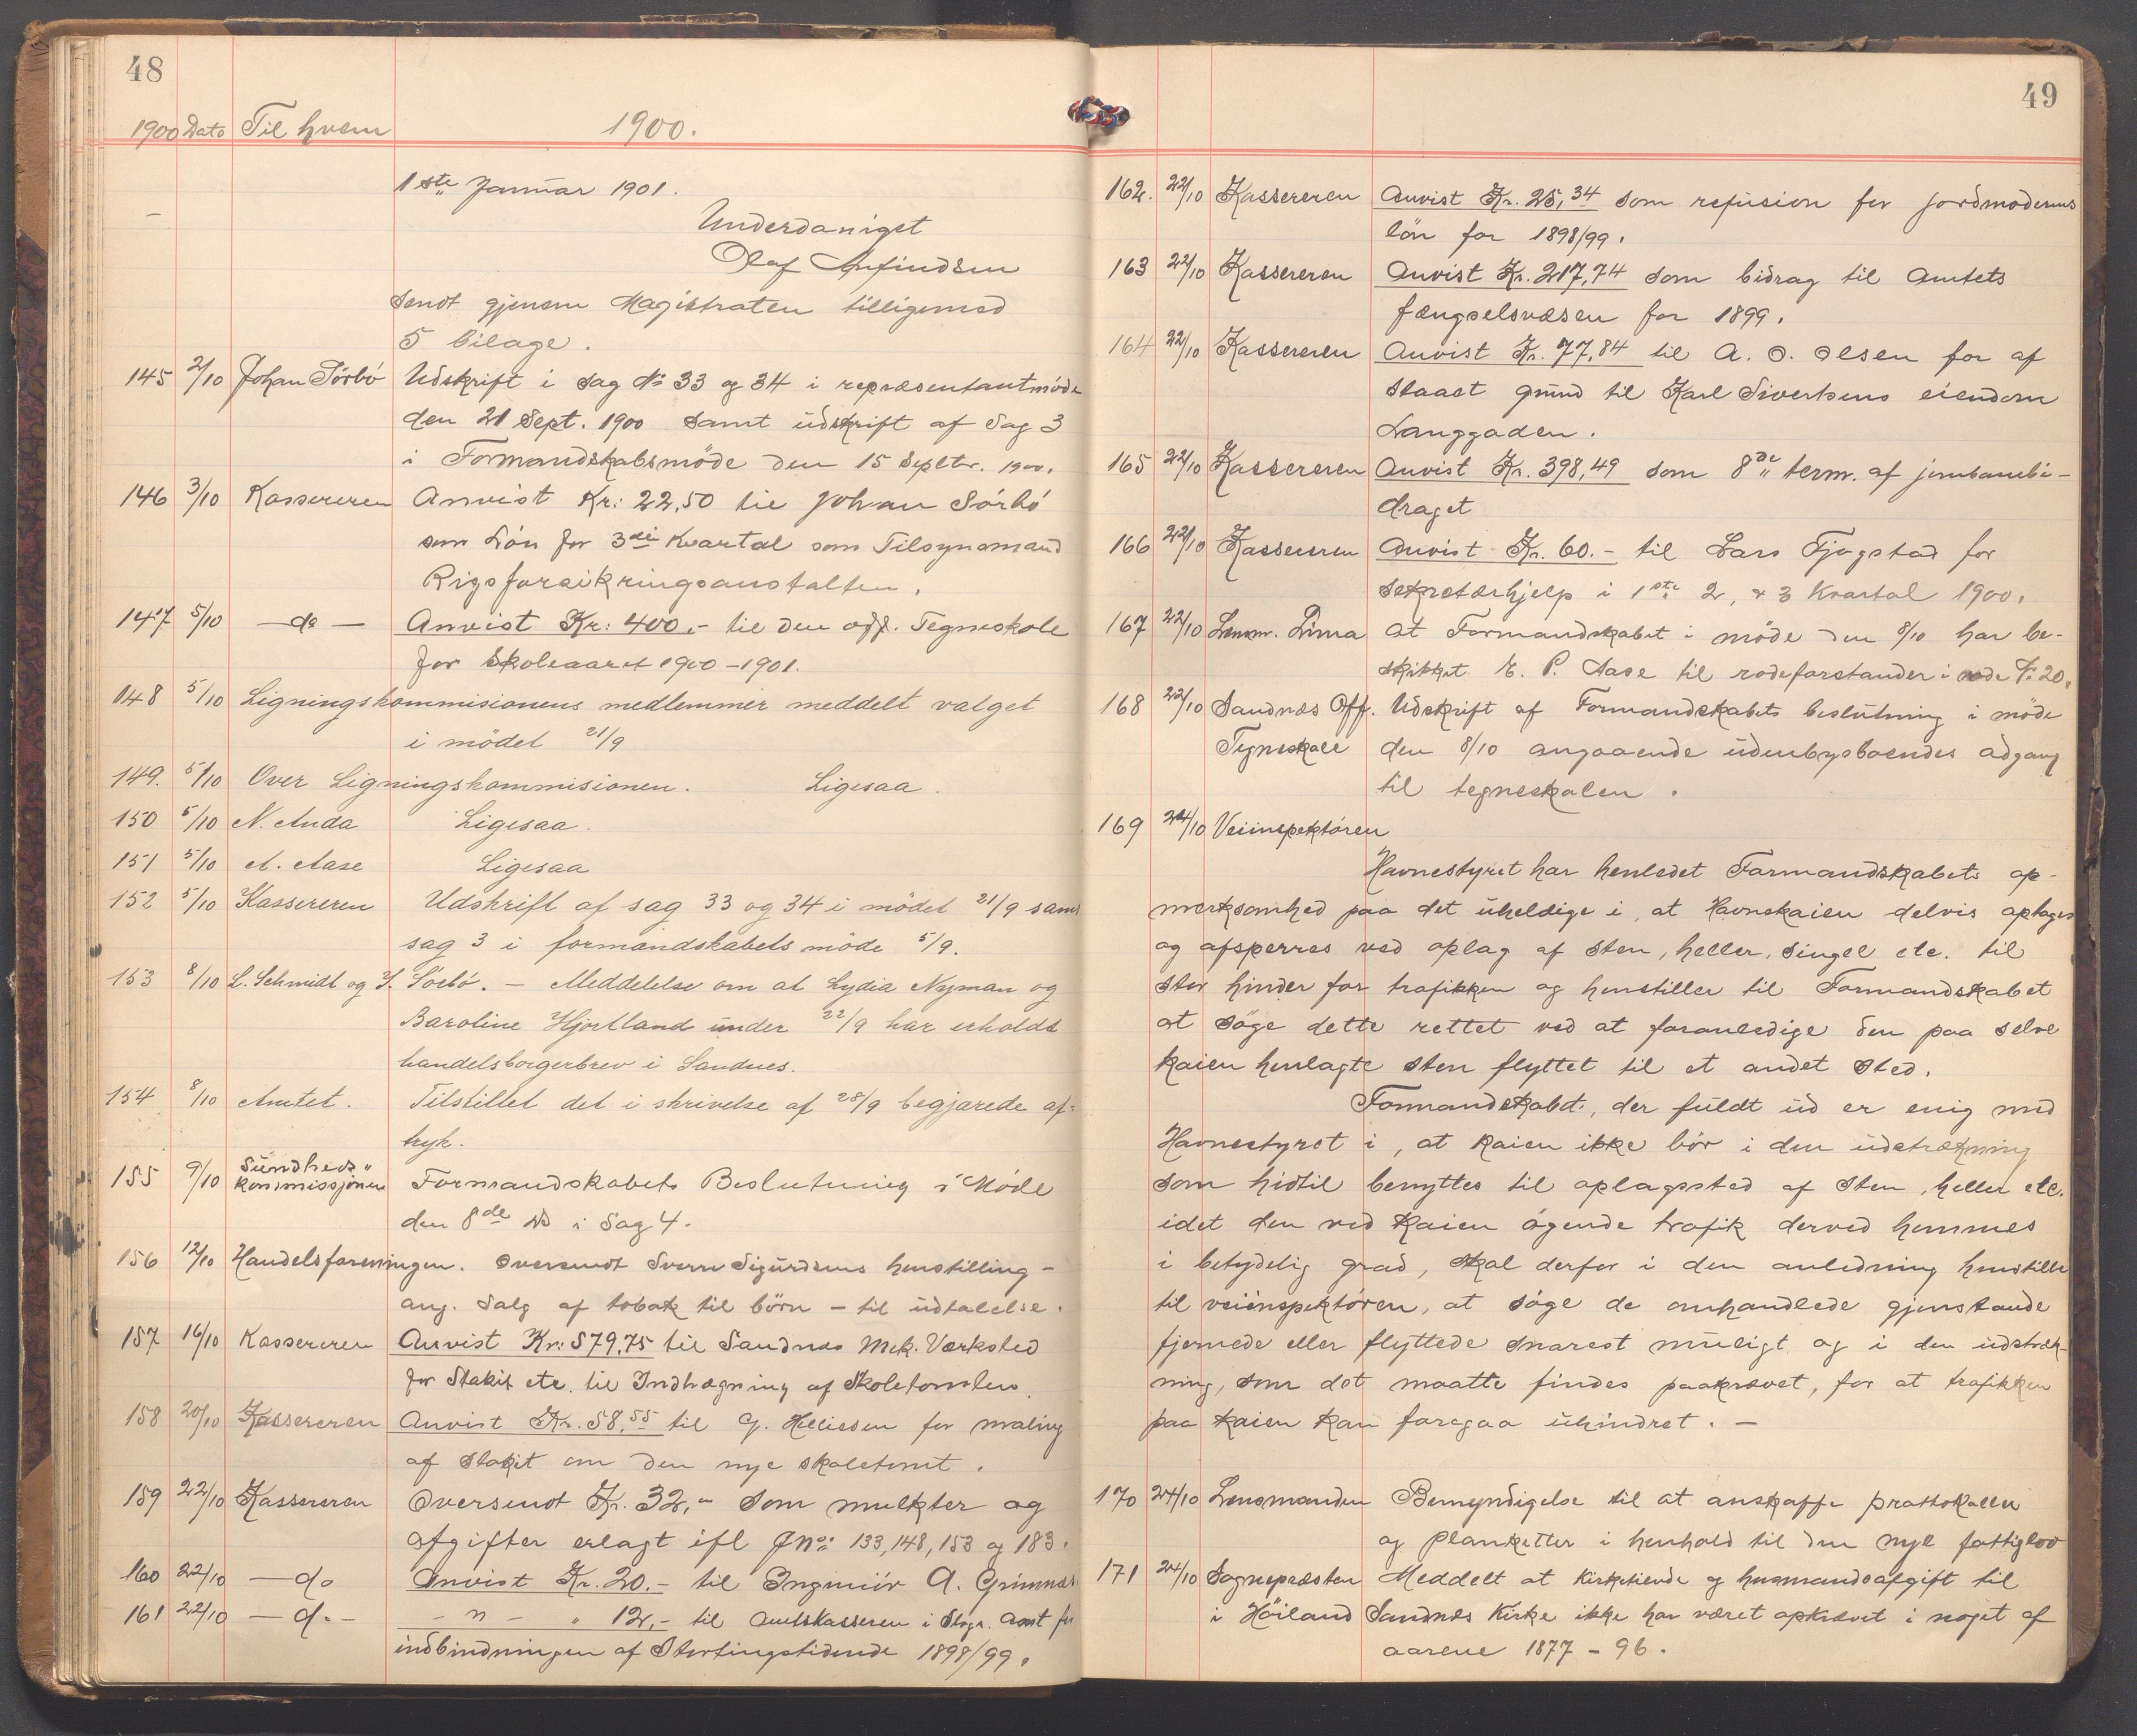 48
1900 Dato Til hvem 1900.
1ste Januar 1901.
Underdanigst
Olaf Anfindsen
Sendt gjenem Magistraten tilligemed
5 bilage.
145 2/10 Johan Sörbö Udskrift i sag No 33 og 34 i repræsentantmöde
den 21 Sept. 1900 samt udskrift af Sag 3
i Formandskabsmöde den 15 Septbr. 1900.
146 3/10 Kassereren Anvist Kr: 22,50 til Johan Sörbö
som Lön for 3die Kvartal som Tilsynsmand
Rigsforsikringsanstalten.
147 5/10 — do — Anvist Kr: 400.- til den off. Tegneskole
for Skoleaaret 1900-1901.
148 5/10 Ligningskommisionens medlemmer meddelt valget
i mödet 21/9
149. 5/10 Over Ligningskommisionen. Ligesaa.
150 5/10 N. Auda Ligesaa.
151 5/10 A. Aase Ligesaa
152 5/10 Kassereren Udskrift af sag 33 og 34 i mödet 21/9 samt
sag 3 i formandskabets möde 5/9.
153 8/10 L. Schmidt og J. Sörbö. — Meddelelse om at Lydia Nyman og
Baroline Hjortland under 22/9 har erholdt
handelsborgerbrev i Sandnes.
154 8/10 Amtet. Tilstillet det i skrivelse af 28/9 begjærede af-
tryk.
155 9/10 Sundheds" kommissjonen Formandskabets Beslutning i Möde
den 8de ds i Sag 4.
156 12/10 Handelsforeningen. Oversendt Sverre Sigurdsens henstilling -
ang. Salg af tobak til börn - til udtalelse.
157 16/10 Kassereren Anvist Kr: 579,75 til Sandnæs Mek. Værksted
for Stakit etc. til Indhægning af Skoletomten.
158 20/10 Kassereren Anvist Kr. 58,55 til G. Helliesen for maling
af stakit om den nye skoletomt.
159 22/10 Kassereren Oversendt Kr. 32,- som mulkter og
afgifter erlagt ifl Jno: 133, 148, 153 og 183.
160 22/10 — do Anvist Kr. 20.- til Ingeniör A. Grimnæs
161 22/10 — do - - " - " 12,- til Amtskasseren i Stvgr. Amt for
indbindningen af Stortingstidende 1898/99.
49
162. 22/10 Kassereren Anvist Kr. 25,34 som refusion for jordmoderens
lön for 1898/99.
163 22/10 Kassereren Anvist Kr. 217,74 som bidrag til Amtets
fængselsvæsen for 1899.
164 22/10 Kassereren Anvist Kr. 77,84 til A. O. Olsen for af
staaet grund til Karl Sivertsens eiendom
Langgaden.
165 22/10 Kassereren Anvist Kr. 398,49 som 8de term. af jernbanebi-
draget
166 22/10 Kassereren Anvist Kr. 60.- til Lars Tjogstad for
sekretærhjelp i 1ste 2, & 3 Kvartal 1900.
167 22/10 Lensm. Lima At Formandskabet i möde den 8/10 har be-
skikket E. P. Aase til rodeforstander i rode No 20.
168 22/10 Sandnæs Off. Udskrift af Formandskabets beslutning i möde
Tegneskole den 8/10 angaaende udenbysboendes adgang
til tegneskolen.
169 24/10 Veiinspektören
Havnestyret har henledet Formandskabets op-
mærksomhed paa det uheldige i, at Havnekaien delvis optages
og afsperres ved oplag af sten, heller, singel etc. til
stor hinder for trafikken og henstiller til Formandskabet
at söge dette rettet ved at foranledige den paa selve
kaien henlagte sten flyttet til et andet sted.
Formandskabet, der fuldt ud er enig med
Havnestyret i, at kaien ikke bör i den udstrækning
som hidtil benyttes til oplagssted af sten, heller etc.
idet den ved kaien ögende trafik derved hemmes
i betydelig grad, skal derfor i den anledning henstille
til veiinspektören, at söge de omhandlede gjenstande
fjernede eller flyttede snarest muligt og i den udstræk-
ning, som det maatte findes paakrævet, for at trafikken
paa kaien kan foregaa uhindret. —
170 24/10 Lensmanden Bemyndigelse til at anskaffe prottokoller
og planketter i henhold til den nye fattiglov
171 24/10 Sognepresten Meddelt at Kirketiende og husmandsafgift til
i Höiland Sandnæs Kirke ikke har været opkrævet i noget af
aarene 1877 - 96.